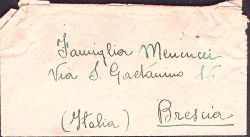 Famiglia Menucci
Via S. Gaetanino 15
(Italia) Brescia